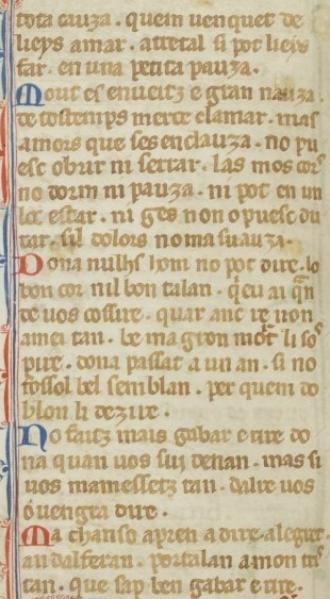 tota cauza. quem uenquet de
lieys amar. atretal si pot lieys
far. en una petita pauza.
Mout es enueitz e gran nauza.
de tostemps merce clamar. mas
amors que ses enclauza. no pu
esc obrir ni serrar. las mos cors
no dorm ni pauza. ni pot en un
loc estar. ni ges non o puesc du
rar. sil dolors no ma suauza.
Dona nulhs hom no pot dire. lo
bon cor nil bon talan. qeu ai qn
de uos cossire. quar anc re non
amei tan. be magron mort li sos
pire. dona passat a un an. si no
fossol bel semblan. per quem do
blon li dezire.
No faitz mais gabar e rire do
na quan uos sui denan. mas si
uos mamessetz tan. dalre uos
auengra dire.
Ma chanso apren a dire. alegre.
an dalferan. portalan amon tris
tan. que sap ben gabar e rire.